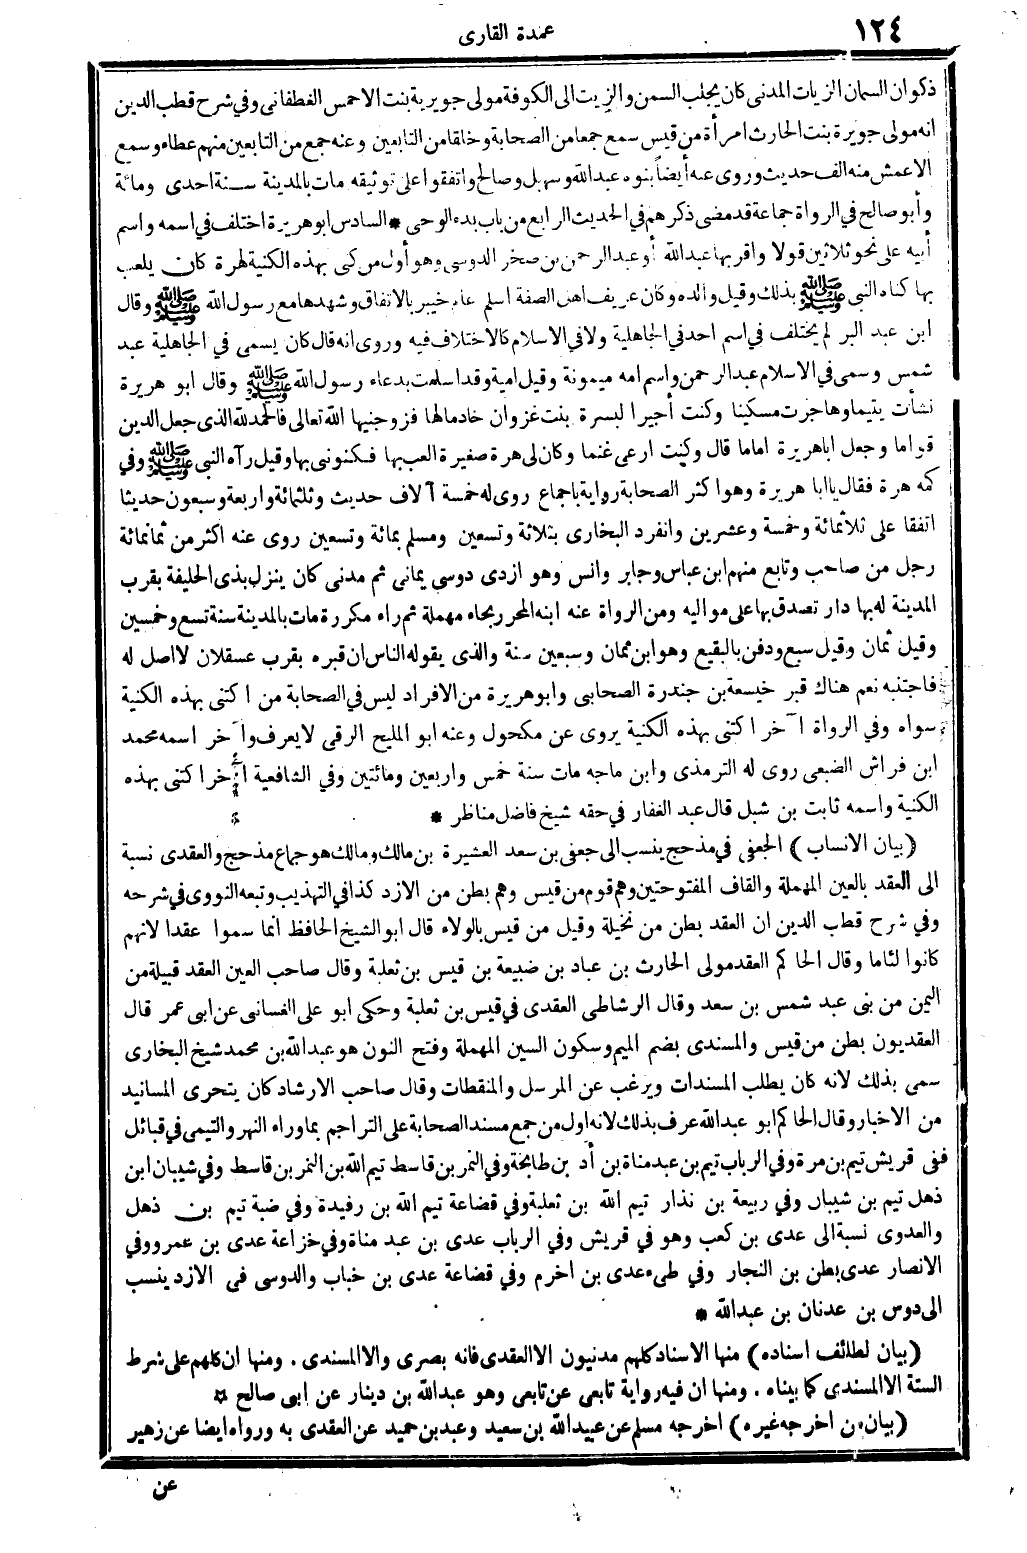 ١٢٤
عمدة القارى
ذكوان السمان الزيات المدنى كان يجلب السمن والزيت الى الكوفة مولى جويرية بنت الاحمس الغطفانى وفي شرح قطب الدين
انه مولى جويرة بنت الحارث امرأة من قيس سمع جمعا من الصحابة وخلقا من التابعين وعنه جمع من التابعين منهم عطاء وسمع
الاعمش منه الف حديث وروى عنه أيضاً بنوه عبدالله وسهيل وصالح واتفقوا على توثيقه مات بالمدينة سنة احدى ومائة
وأبو صالح في الرواة جماعة قد مضى ذكرهم في الحديث الرابع من باب بدء الوحى * السادس ابو هريرة اختلف في اسمه واسم
أبيه على نحو ثلاثين قولا واقربها عبدالله أو عبد الرحمن بن صخر الدوسى وهو أول من كنى بهذه الكنية لهرة كان يلعب
بها كناه النبى ﷺ بذلك وقيل والده وكان عريف اهل الصفة اسلم عام خيبر بالاتفاق وشهدها مع رسول الله ﷺ وقال
ابن عبد البر لم يختلف في اسم احد في الجاهلية ولا في الاسلام كالاختلاف فيه وروى انه قال كان يسمى في الجاهلية عبد
شمس وسمى في الاسلام عبد الرحمن واسم امه ميمونة وقيل امية وقد اسلمت بدعاء رسول الله ﷺ وقال ابو هريرة
نشأت يتيما وهاجرت مسكينا وكنت أجيرا لبسرة بنت غزوان خادما لها فزوجنيها الله تعالى فالحمد لله الذى جعل الدين
قواما وجعل اباهريرة اماما قال وكنت ارعى غنما وكان لى هرة صغيرة العب بها فكنونى بها وقيل رآه النبى ﷺ وفي
كمه هرة فقال يا ابا هريرة وهو اكثر الصحابة رواية باجماع روى له خمسة آلاف حديث وثلثمائة واربعة وسبعون حديثا
اتفقا على ثلاثمائة وخمسة وعشرين وانفرد البخارى بثلاثة وتسعين ومسلم بمائة وتسعين روى عنه اكثر من ثمانمائة
رجل من صاحب وتابع منهم ابن عباس وجابر وانس وهو ازدى دوسى يمانى ثم مدنى كان ينزل بذى الحليفة بقرب
المدينة له بها دار تصدق بها على مواليه ومن الرواة عنه ابنه المحرر بحاء مهملة ثم راء مكررة مات بالمدينة سنة تسع وخمسين
وقيل ثمان وقيل سبع ودفن بالبقيع وهو ابن ثمان وسبعين سنة والذى يقوله الناس ان قبره بقرب عسقلان لا اصل له
فاجتنبه نعم هناك قبر خيسعة بن جندرة الصحابى وابو هريرة من الافراد ليس في الصحابة من اكتنى بهذه الكنية
سواه وفي الرواة آخر اكتنى بهذه الكنية يروى عن مكحول وعنه ابو المليح الرقى لا يعرف وآخر اسمه محمد
ابن فراش الضبعى روى له الترمذى وابن ماجه مات سنة خمس واربعين ومائتين وفي الشافعية آخر اكتنى بهذه
الكنية واسمه ثابت بن شبل قال عبد الغفار في حقه شيخ فاضل مناظر *
(بيان الانساب) الجعفى في مذحج ينسب الى جعفى بن سعد العشيرة بن مالك ومالك هو جماع مذحج والعقدى نسبة
الى العقد بالعين المهملة والقاف المفتوحتين وهم قوم من قيس وهم بطن من الازد كذا في التهذيب وتبعه النووى في شرحه
وفي شرح قطب الدين ان العقد بطن من نخيلة وقيل من قيس بالولاء قال ابو الشيخ الحافظ انما سموا عقدا لانهم
كانوا لئاما وقال الحاكم العقد مولى الحارث بن عباد بن ضبيعة بن قيس بن ثعلبة وقال صاحب العين العقد قبيلة من
اليمن من بنى عبد شمس بن سعد وقال الرشاطى العقدى في قيس بن ثعلبة وحكى ابو على الغسانى عن ابى عمر قال
العقديون بطن من قيس والمسندى بضم الميم وسكون السين المهملة وفتح النون هو عبدالله بن محمد شيخ البخارى
سمى بذلك لانه كان يطلب المسندات ويرغب عن المرسل والمنقطات وقال صاحب الارشاد كان يتحرى المسانيد
من الاخبار وقال الحاكم ابو عبدالله عرف بذلك لانه اول من جمع مسند الصحابة على التراجم بما وراء النهر والتيمى في قبائل
ففى قريش تيم بن مرة وفي الرباب تيم بن عبد مناة بن أد بن طابخة وفي النمر بن قاسط تيم الله بن النمر بن قاسط وفي شيبان ابن
ذهل تيم بن شيبار وفي ربيعة بن نذار تيم الله بن ثعلبة وفي قضاعة تيم الله بن رفيدة وفي ضبة تيم بن ذهل
والعدوى نسبة الى عدى بن كعب وهو في قريش وفي الرباب عدى بن عبد مناة وفي خزاعة عدى بن عمرو وفي
الانصار عدى بطن بن النجار وفي طىء عدى بن اخرم وفي قضاعة عدى بن خباب والدوسى فى الازد ينسب
الى دوس بن عدنان بن عبدالله *
(بيان لطائف اسناده) منها الاسناد كلهم مدنيون الا العقدى فانه بصرى والا المسندى . ومنها ان كلهم على شرط
الستة الا المسندى كما بيناه . ومنها ان فيه رواية تابعى عن تابعى وهو عبدالله بن دينار عن ابى صالح *
(بيان من اخرجه غيره) اخرجه مسلم عن عبيدالله بن سعيد وعبد بن حميد عن العقدى به ورواه ايضا عن زهير
عن